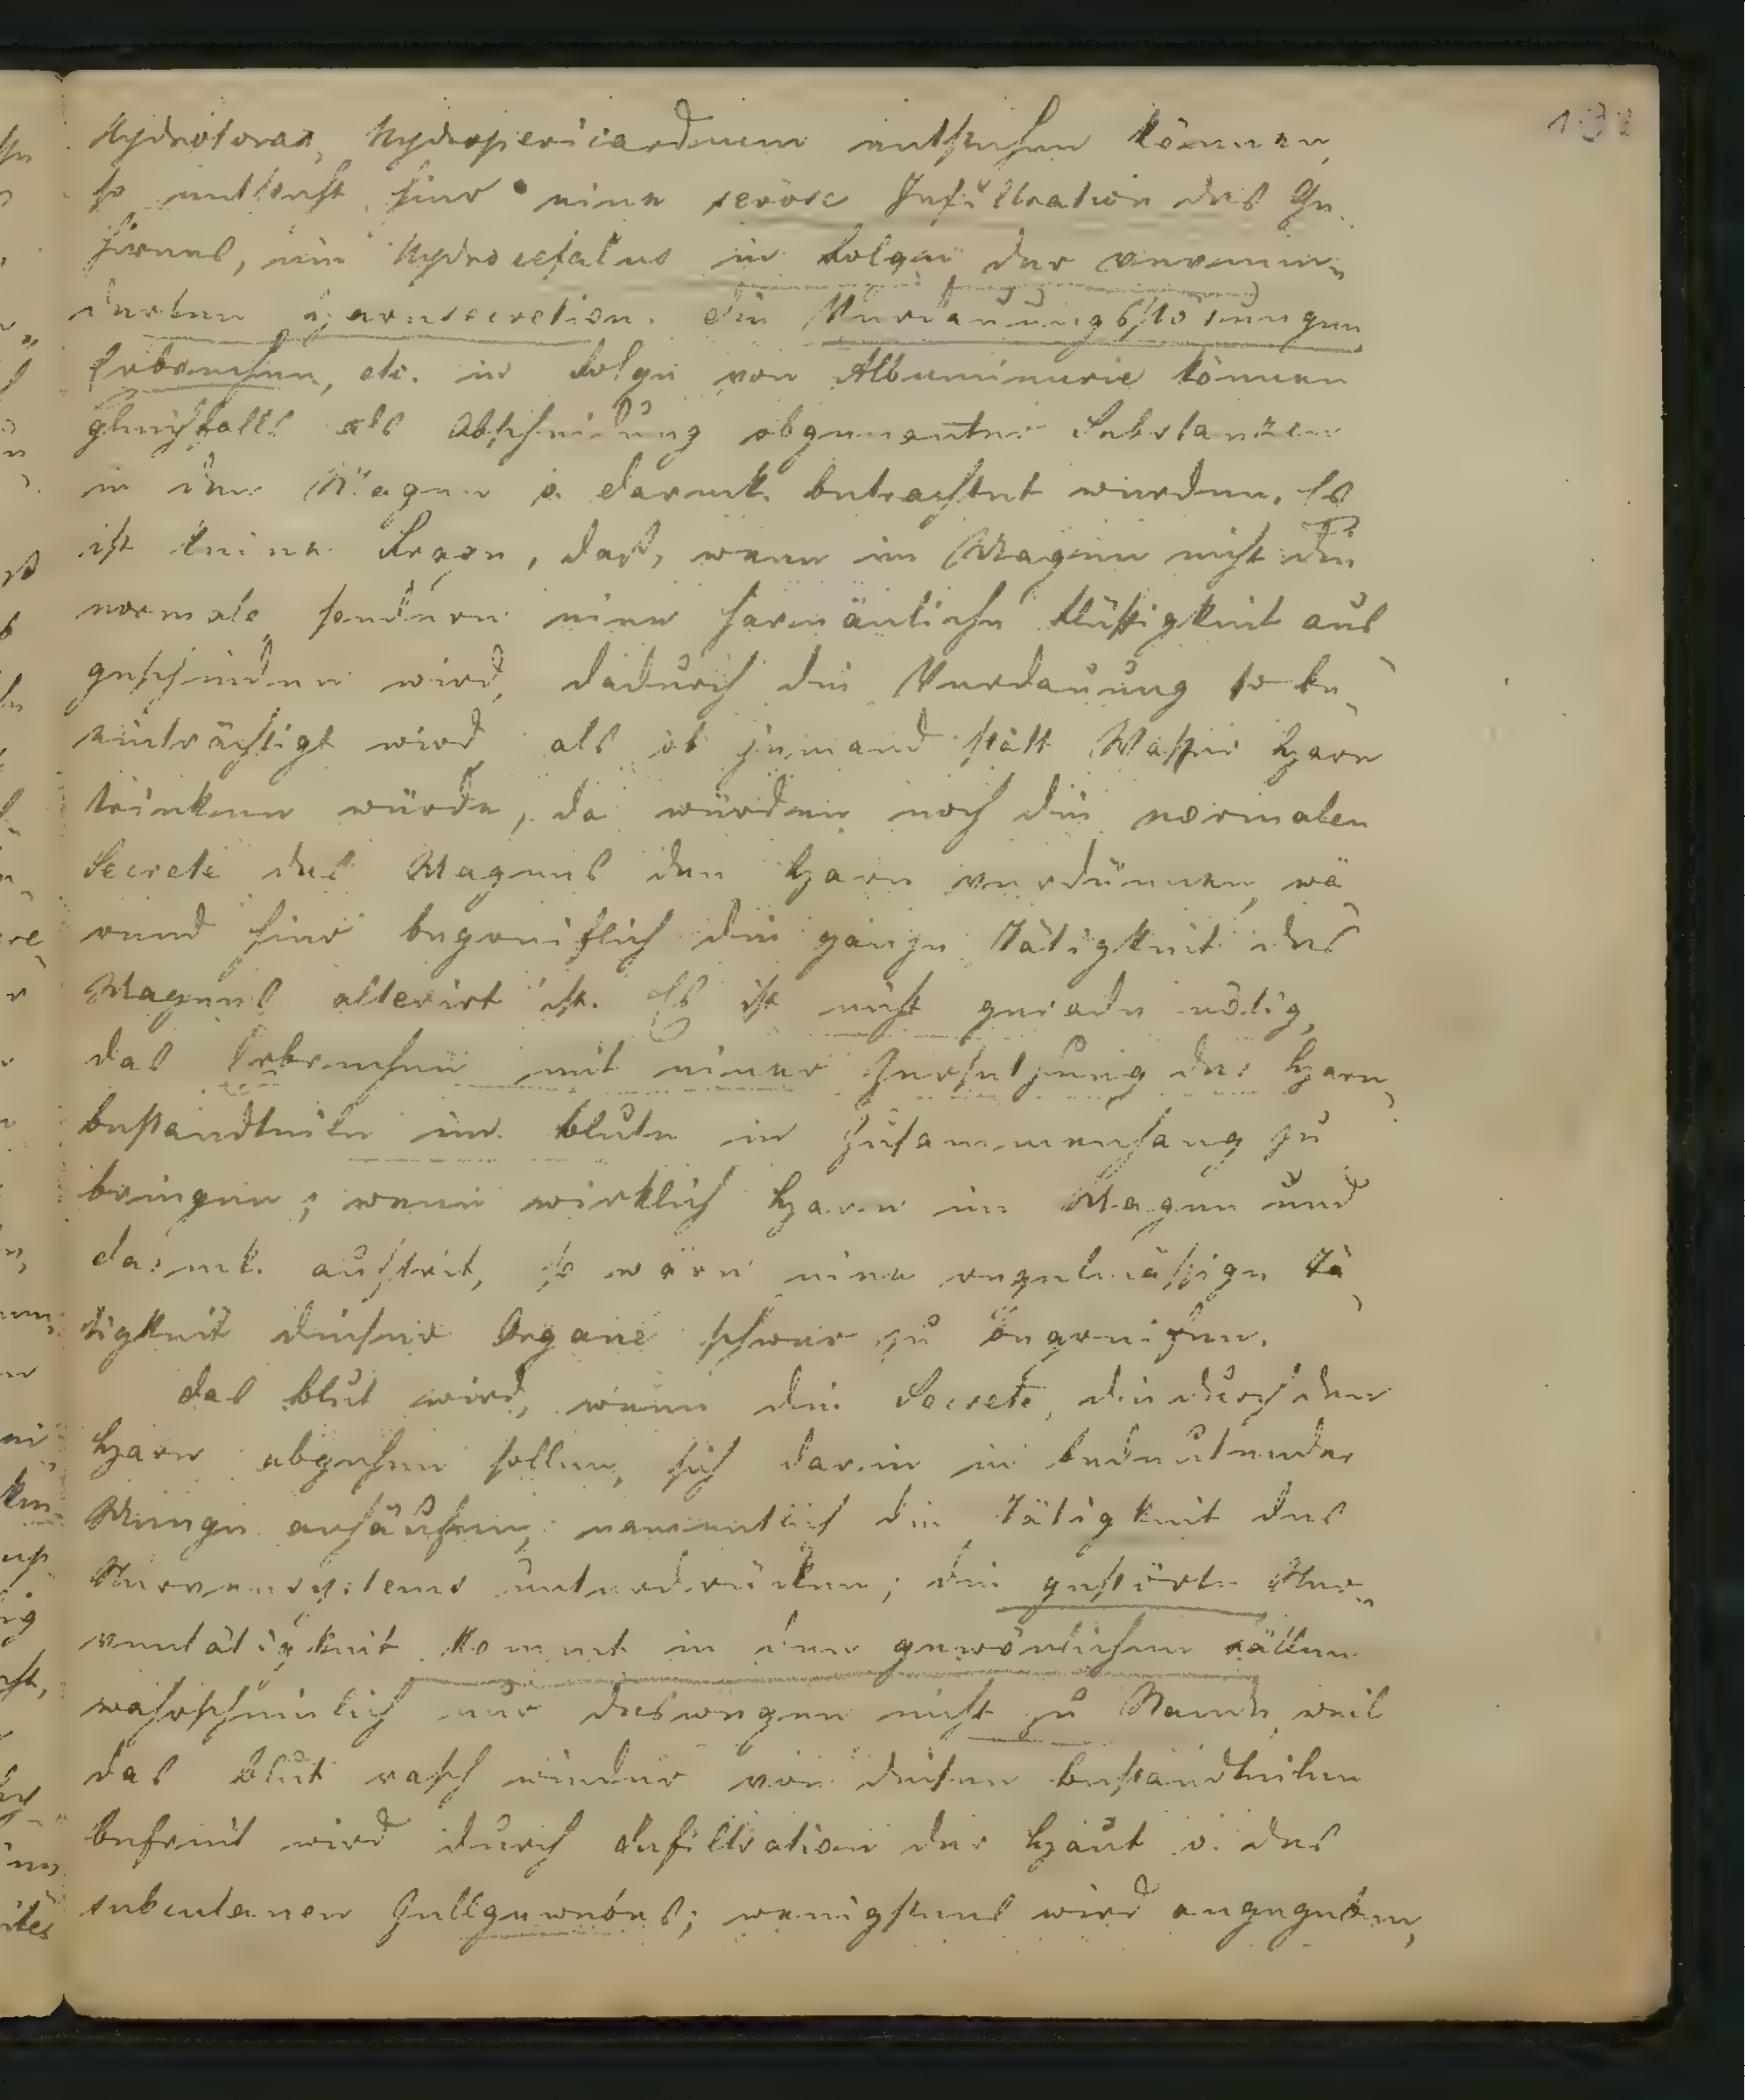 132
Hydrotorax, Hydropericardium entstehen können,
so entsteht hier eine seröse Infiltration des Ge-
hirnes, ein Hydrocefalus in Folge der vermin-
derten Harnsecretion. Die Verdauungsstörungen
Erbrechen, etc. in Folge von Albuminurie können
gleichfalls als Abscheidung sogenanter Substanzen
in den Magen u. Darmk. betrachtet werden. Es
ist keine Frage, daß, wenn im Magen nicht die
normale, sondern eine harnänliche Flüssigkeit aus
geschieden wird, dadurch die Verdauung so be-
einträchtigt wird als ob jemand statt Wasser Harn
trinken würde, da würden noch die normalen
Secrete des Magens den Harn verdünnen, wä-
rend hier begreiflich die ganze Tätigkeit des
Magens alterirt ist. Es ist nicht gerade nötig,
das Erbrechen mit einer Zersetzung der Harn-
bestandteile im Blute in Zusammenhang zu
bringen; wenn wirklich Harn im Magen und
Darmk. auftrit, so wäre eine regelmäßige Tä-
tigkeit dieser Organe schwer zu begreifen.
Das Blut wird, wenn die Secrete, die durch den
Harn abgehen sollen, sich darin in bedeutender
Menge anhäufen, namentlich die Tätigkeit des
Nervensystems unterdrücken; die gestörte Ner-
ventätigkeit komt in den gewönlichen Fällen
wahrscheinlich nur deswegen nicht zu Stande, weil
das Blut rasch wieder von diesen Bestandteilen
befreit wird durch Infiltration der Haut u. des
subcutanen Zellgewebes; wenigstens wird angegeben,